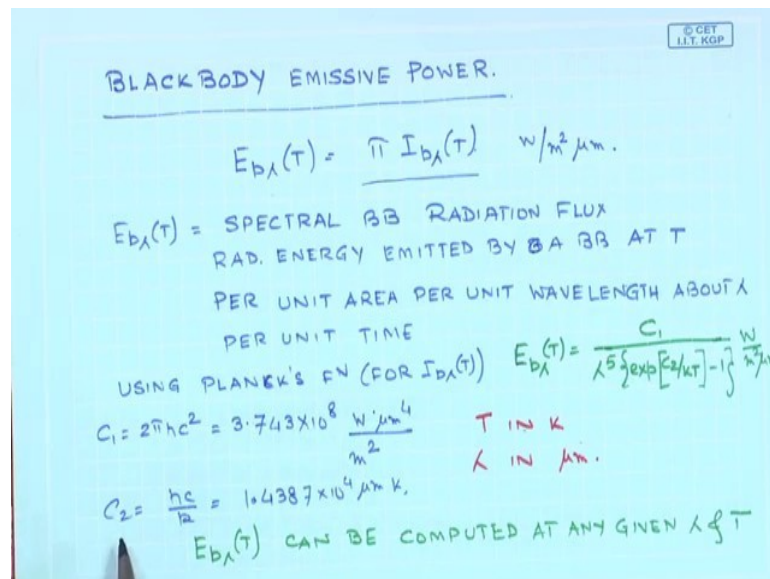 © CET
I.I.T. KGP
BLACKBODY EMISSIVE POWER.
Ebλ(T) = π Ibλ(T) W/m² μm.
Ebλ(T) = SPECTRAL BB RADIATION FLUX
RAD. ENERGY EMITTED BY A BB AT T
PER UNIT AREA PER UNIT WAVELENGTH ABOUT λ
PER UNIT TIME
USING PLANCK'S FN (FOR Ibλ(T)) Ebλ(T) = C₁ / λ⁵{exp[C₂/λT]-1} W/m²μm
C₁ = 2πhc² = 3.743×10⁸ W·μm⁴/m² T IN K
λ IN μm.
C₂ = hc/k = 1.4387×10⁴ μm K.
Ebλ(T) CAN BE COMPUTED AT ANY GIVEN λ & T